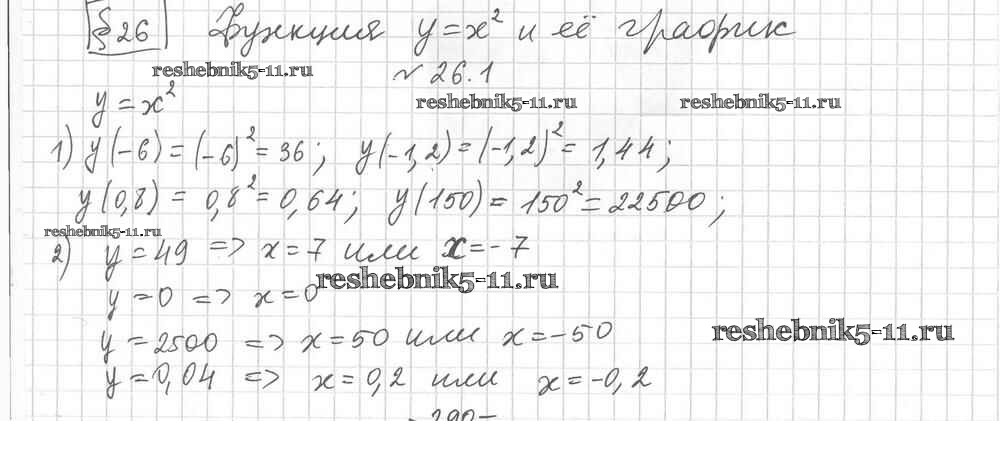 § 26 Функция y = x² и её график
reshebnik5-11.ru
№ 26.1
y = x²
reshebnik5-11.ru reshebnik5-11.ru
1) y(-6) = (-6)² = 36; y(-1,2) = (-1,2)² = 1,44;
y(0,8) = 0,8² = 0,64; y(150) = 150² = 22500;
reshebnik5-11.ru
2) y = 49 => x = 7 или x = -7
reshebnik5-11.ru
y = 0 => x = 0
reshebnik5-11.ru
y = 2500 => x = 50 или x = -50
y = 0,04 => x = 0,2 или x = -0,2